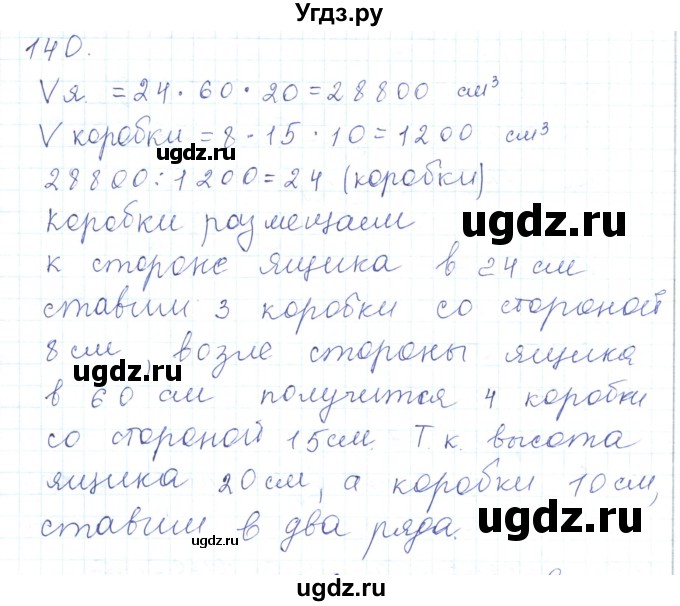 Угдз.ру
140.
V я. = 24 · 60 · 20 = 28800 см³
V коробки = 8 · 15 · 10 = 1200 см³
ugdz.ru
28800 : 1200 = 24 (коробки)
коробки размещаем
ugdz.ru
к стороне ящика в 24 см
ставим 3 коробки со стороной
8 см, возле стороны ящика
ugdz.ru
в 60 см получится 4 коробки
со стороной 15 см. Т.к. высота
ящика 20 см, а коробки 10 см,
ugdz.ru
ставим в два ряда.
ugdz.ru
ugdz.ru